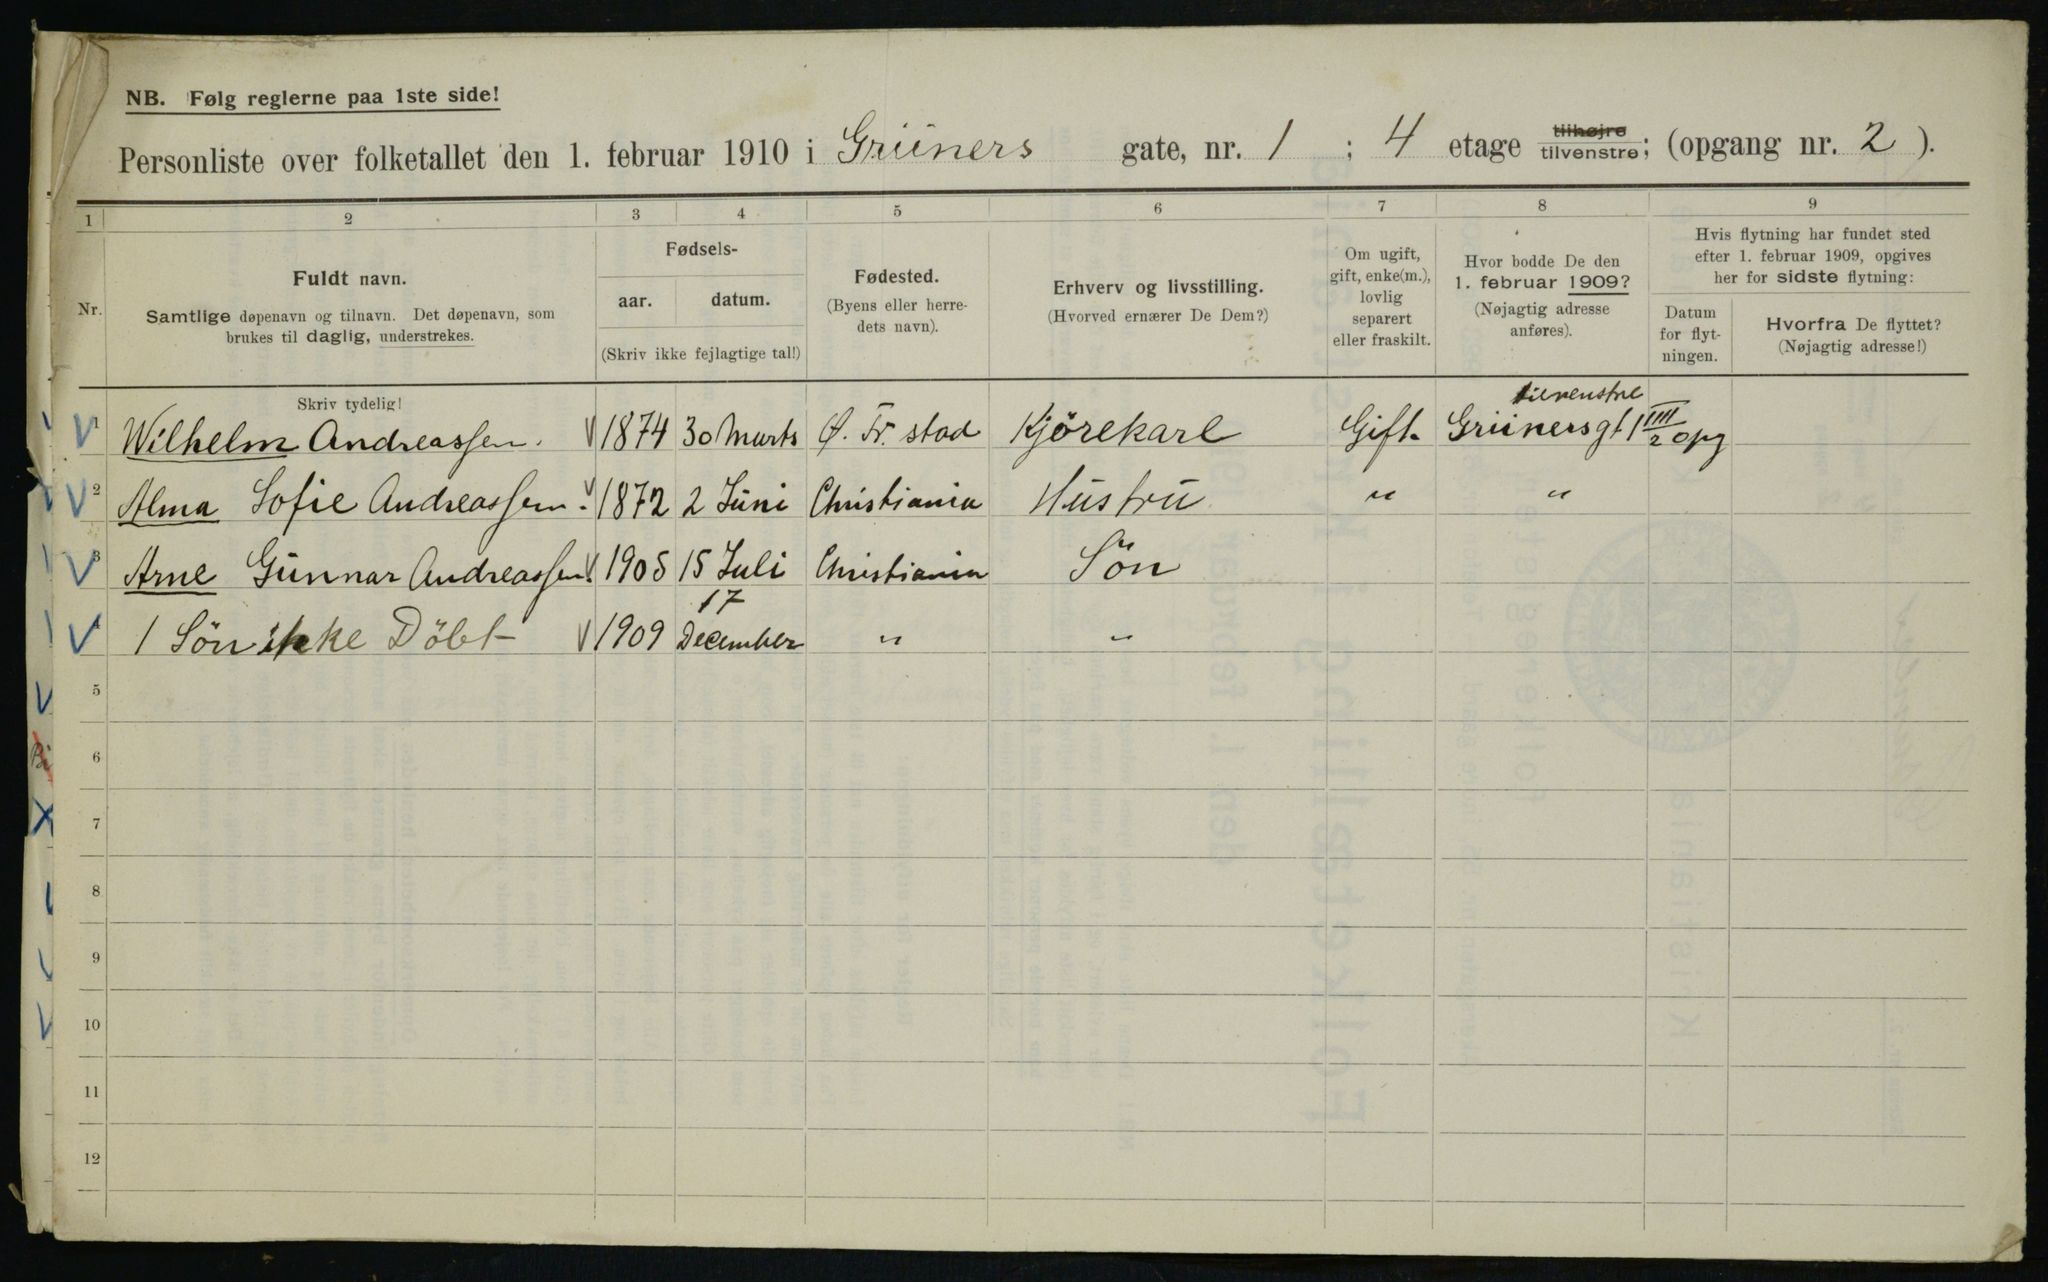 NB. Følg reglerne paa 1ste side!
Personliste over folketallet den 1. februar 1910 i Grüners gate, nr. 1 ; 4 etage tilhøjre tilvenstre; (opgang nr. 2 ).
1 2 3 4 5 6 7 8 9
Nr.
Fuldt navn.
Samtlige døpenavn og tilnavn. Det døpenavn, som
brukes til daglig, understrekes.
Fødsels-
aar. datum.
(Skriv ikke fejlagtige tal!)
Fødested.
(Byens eller herre-
dets navn).
Erhverv og livsstilling.
(Hvorved ernærer De Dem?)
Om ugift,
gift, enke(m.),
lovlig
separert
eller fraskilt.
Hvor bodde De den
1. februar 1909?
(Nøjagtig adresse
anføres).
Hvis flytning har fundet sted
efter 1. februar 1909, opgives
her for sidste flytning:
Datum
for flyt-
ningen.
Hvorfra De flyttet?
(Nøjagtig adresse!)
Skriv tydelig!
tilvenstre
1 Wilhelm Andreassen. 1874 30 Marts Ø. Fr. stad Kjörekarl Gift. Grünersgt 1 IIII/2 opg
2 Alma Sofie Andreassen. 1872 2 Juni Christiania Hustru " "
3 Arne Gunnar Andreassen. 1905 15 Juli Christiania Sön
17
4 1 Sön ikke Döbt 1909 December " "
5
6
7
8
9
10
11
12
Bi